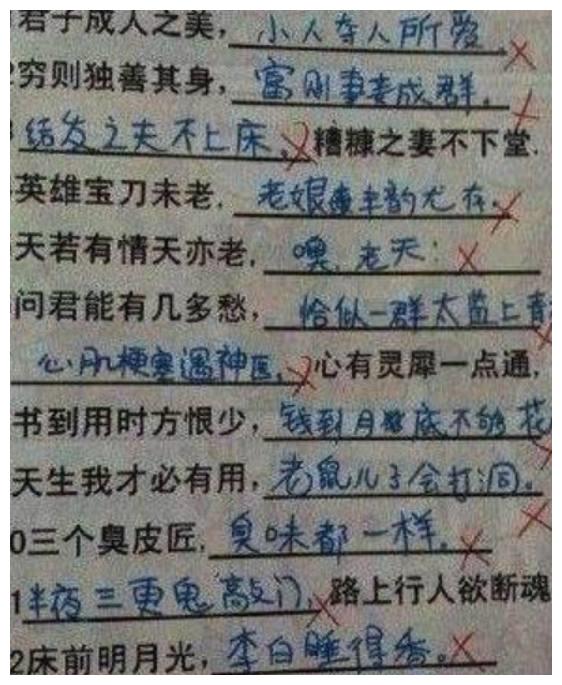 君子成人之美,小人夺人所爱
穷则独善其身,富则妻妾成群。
结发之夫不上床,糟糠之妻不下堂.
英雄宝刀未老,老娘丰韵尤存。
天若有情天亦老,噢,老天!
问君能有几多愁,恰似一群太监上青
心肌梗塞遇神医,心有灵犀一点通,
书到用时方恨少,钱到月底不够花
天生我才必有用,老鼠儿子会打洞。
0三个臭皮匠,臭味都一样。
1半夜三更鬼敲门,路上行人欲断魂
2床前明月光,李白睡得香。